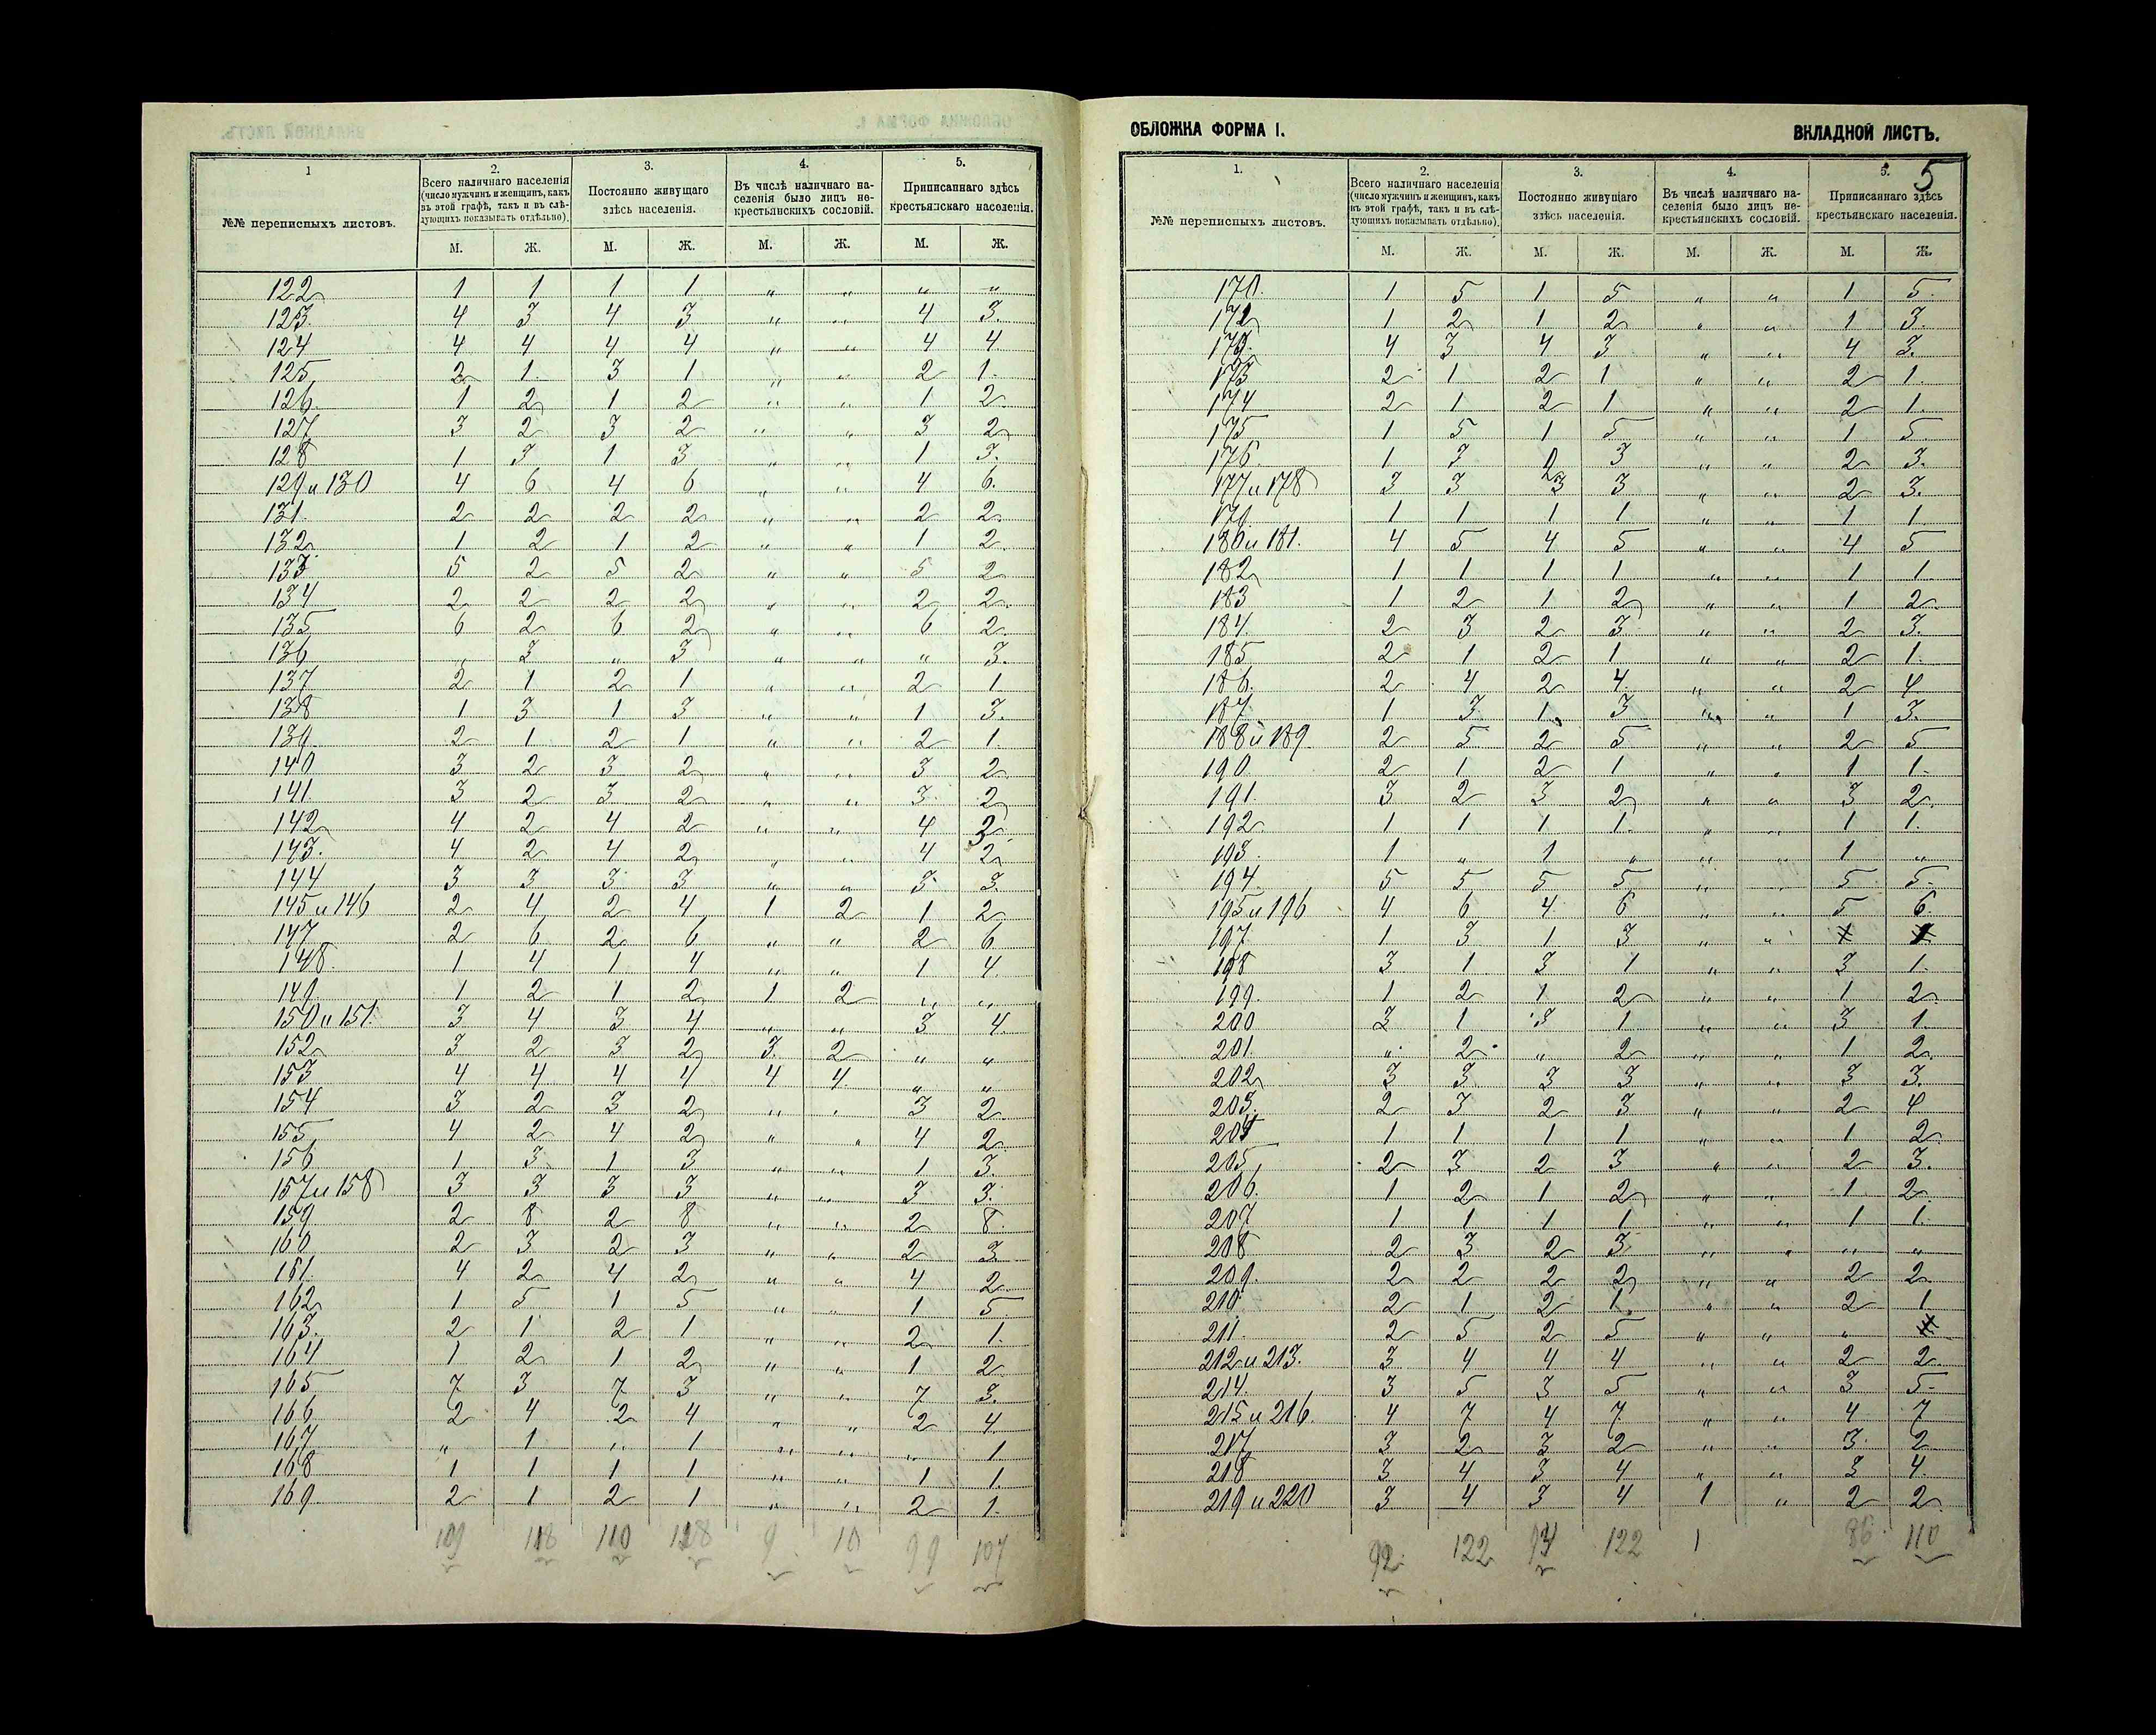 1
2.
3.
4.
5.
№№ переписныхъ листовъ.
Всего наличнаго населенія
(число мужчинъ и женщинъ, какъ
въ этой графѣ, такъ и въ слѣ-
дующихъ показывать отдѣльно).
Постоянно живущаго
здѣсь населенія.
Въ числѣ наличнаго на-
селенія было лицъ не-
крестьянскихъ сословій.
Приписаннаго здѣсь
крестьянскаго населенія.
М. Ж. М. Ж. М. Ж. М. Ж.
122 1 1 1 1 " " " "
123. 4 3 4 3 " " 4 3.
124 4 4 4 4 " " 4 4
125 2 1. 3 1 " " 2 1.
126. 1 2 1 2 " " 1 2
127 3 2 3 2 " " 3 2
128 1 3 1 3 " " 1 3.
129 и 130 4 6 4 6 " " 4 6.
131. 2 2 2 2 " " 2 2.
132 1 2 1 2 " " 1 2.
133 5 2 5 2 " " 5 2
134 2 2 2 2 " " 2 2.
135 6 2 6 2 " " 6 2.
136 " 3 " 3 " " " 3.
137 2 1 2 1 " " 2 1.
138 1 3 1 3 " " 1 3.
139. 2 1 2 1 " " 2 1.
140 3 2 3 2 " " 3 2.
141. 3 2 3 2 " " 3. 2
142 4 2 4 2 " " 4
143. 4 2 4 2 " " 4 2
144 3 3 3 3 " " 3 3.
145 и 146 2 4 2 4 1 2 1 2
147 2 6 2 6 " " 2 6
148. 1 4 1 4 " " 1 4.
149 1 2 1 2 1 2 " "
150 и 151. 3 4 3 4 " " 3 4.
152 3 2 3 2 3 2 " "
153 4 4 4 4 4 4 " "
154 3 2 3 2 " " 3 2
155 4 2 4 2 " " 4 2
156 1 3 1 3 " " 1 3.
157 и 158 3 3 3 3 " " 3 3.
159 2 8 2 8 " " 2 8.
160 2 3 2 3 " " 2 3
161. 4 2 4 2 " " 4 2.
162 1 5 1 5 " " 1 5
163. 2 1 2 1 " " 2 1.
164 1 2 1 2 " " 1 2
165 7 3 7 3 " " 7 3.
166 2 4 2 4 " " 2 4.
167 " 1 " 1 " " " 1.
168 1 1 1 1 " " 1 1.
169. 2 1 2 1 " " 2 1.
109 118 110 118 9 10 99 107
ОБЛОЖКА ФОРМА I.
ВКЛАДНОЙ ЛИСТЪ.
5
1.
2.
3.
4.
5.
№№ переписныхъ листовъ.
Всего наличнаго населенія
(число мужчинъ и женщинъ, какъ
въ этой графѣ, такъ и въ слѣ-
дующихъ показывать отдѣльно).
Постоянно живущаго
здѣсь населенія.
Въ числѣ наличнаго на-
селенія было лицъ не-
крестьянскихъ сословій.
Приписаннаго здѣсь
крестьянскаго населенія.
М. Ж. М. Ж. М. Ж. М. Ж.
170. 1 5 1 5 " " 1 5.
1 2 1 2 " " 1 3.
4 3 4 3 " " 4 3.
173 2 1 2 1 " " 2 1.
174 2 1 2 1 " " 2 1.
175 1 5 1 5 " " 1 5.
176. 1 3 2 3 " " 2 3.
177 и 178 3 3 3 3 " " 2 3.
179. 1 1 1 1 " " 1 1
180 и 181. 4 5 4 5 " " 4 5
182 1 1 1 1 " " 1 1.
183 1 2 1 2 " " 1 2.
184. 2 3 2 3 " " 2 3.
185 2 1 2 1 " " 2 1.
186. 2 4 2 4. " " 2 4.
187. 1 3 1 3 " " 1 3.
188 и 189. 2 5 2 5 " " 2 5
190. 2 1 2 1 " " 1 1.
191. 3 2 3 2 " " 3 2.
192. 1 1 1 1. " " 1 1.
193. 1 " 1 " " " 1 "
194. 5 5 5 5 " " 5 5.
195 и 196 4 6 4 6 " " 5 6.
197. 1 3 1 3 " "
198 3 1 3 1 " " 3 1.
199. 1 2 1 2 " " 1 2.
200 3 1 3 1 " " 3 1.
201. " 2 " 2 " " 1 2.
202 3 3 3 3 " " 3 3.
203. 2 3 2 3 " " 2 4
204 1 1 1 1 " " 1 2
205, 2 3 2 3 " " 2 3.
206. 1 2 1 2 " " 1 2
207 1 1 1 1 " " 1 1.
208 2 3 2 3 " " " "
209. 2 2 2 2 " " 2 2.
210 2 1 2 1. " " 2 1
211. 2 5 2 5 " " "
212 и 213. 3 4 4 4 " " 2 2.
214. 3 5 3 5 " " 3 5.
215 и 216. 4 7 4 7 " " 4 7
217 3 2 3 2 " " 3. 2
218 3 4 3 4 " " 3 4.
219 и 220 3 4 3 4 1 " 2 2.
92. 122 94 122 1 86. 110